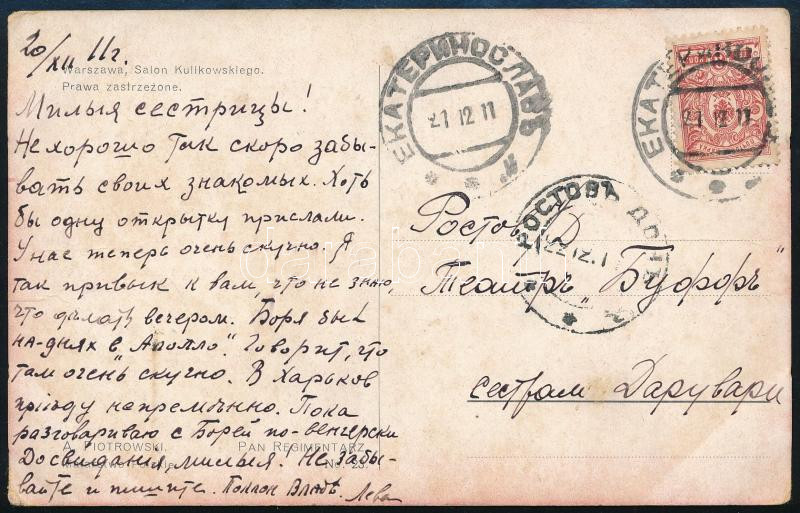 20/XII 11г.
Warszawa, Salon Kulikowskiego.
Prawa zastrzeżone.
Милыя сестрицы!
Нехорошо так скоро забы-
вать своих знакомых. Хоть
бы одну открытку прислали.
У нас теперь очень скучно. Я
так привык к вам, что не знаю,
что дѣлать вечером. Боря был
на-днях в „Аполло". Говорит, что
там очень скучно. В Харьков
пріѣду непремѣнно. Пока
разговариваю с Борей по-венгерски
A. PIOTROWSKI. PAN REGIMENTARZ.
Досвидания милыя! Не забы-
No. 23.
вайте и пишите. Лева
ЕКАТЕРИНОСЛАВЪ
21 12 11
ЕКАТЕРИНОСЛАВЪ
21 12 11
РОСТОВЪ ДОНЪ
22.12.1
Ростов Д
Театръ „Буффъ"
сестрам Дарувари
darabanth